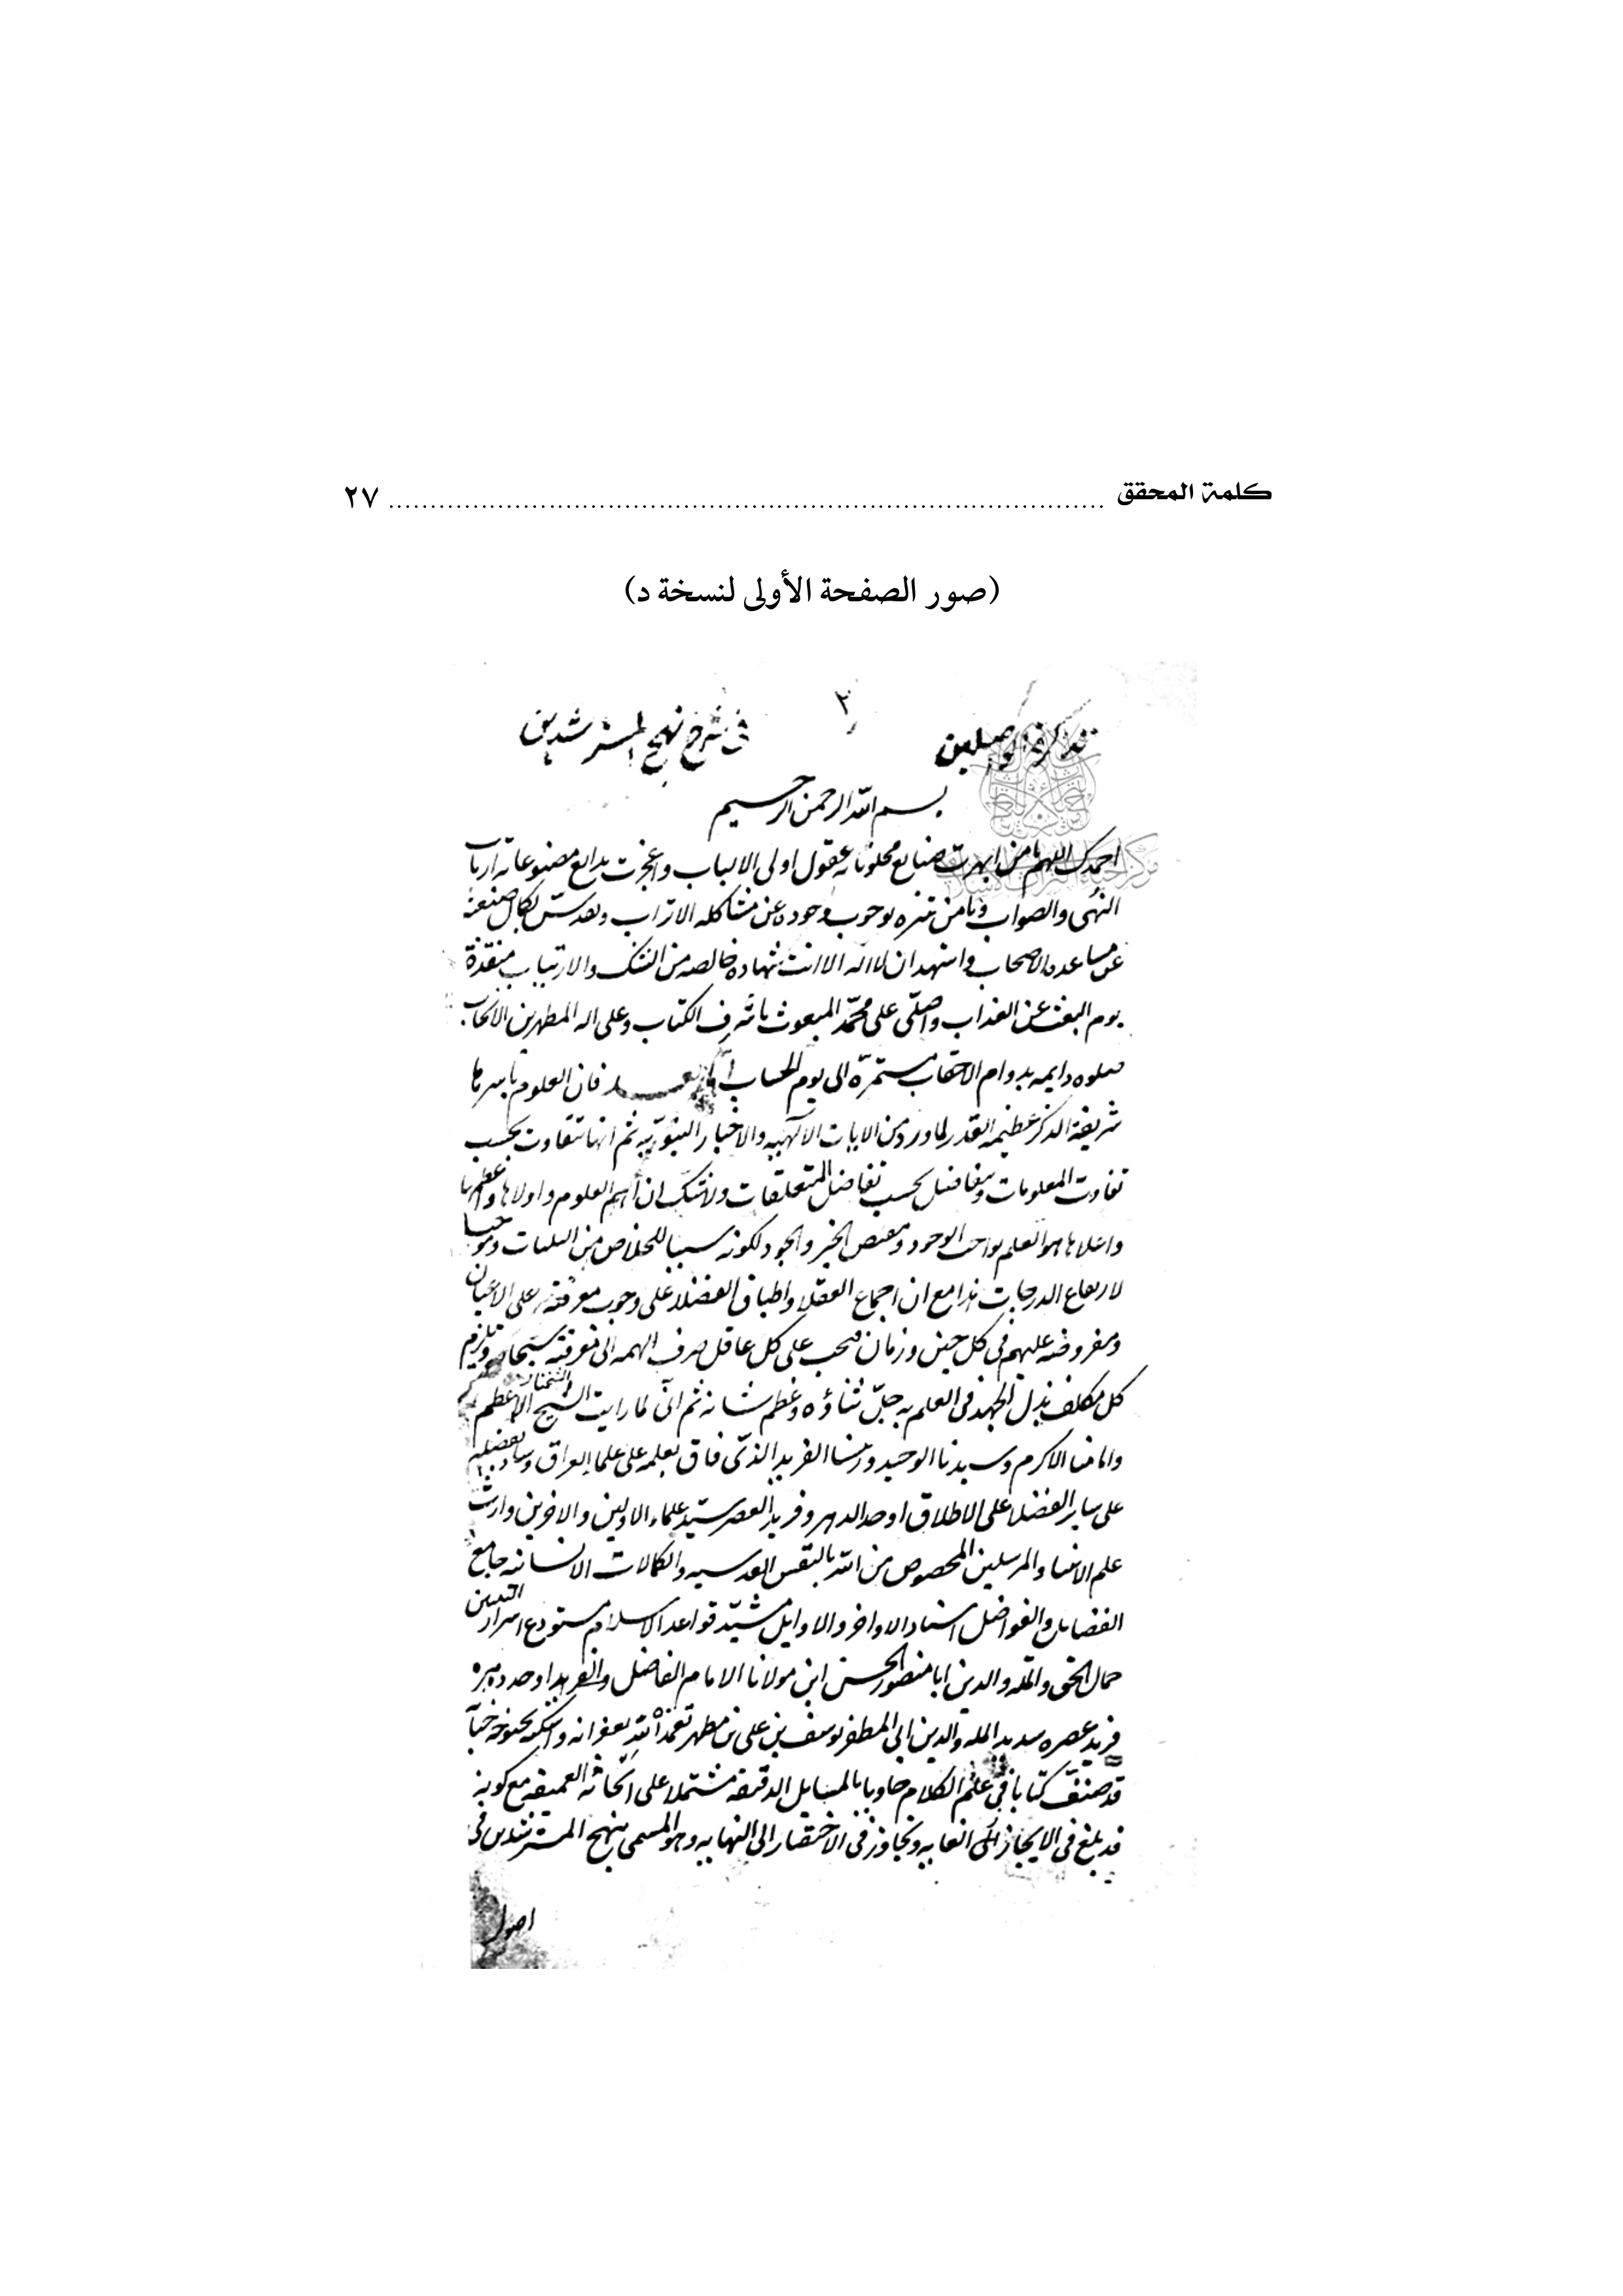 كلمة المحقق ........................................................................................ ٢٧
(صور الصفحة الأولى لنسخة د)
٢
تذكرة الواصلين في شرح نهج المسترشدين
بسم الله الرحمن الرحيم
احمدك اللهم يا من ابهرت صنايع مخلوقاته عقول اولى الالباب واعجزت بدايع مصنوعاته ارباب
النهى والصواب ويا من تنزه بوجوب وجوده عن مشاكله الاتراب وتقدس بكمال صنعته
عن مساعده الاصحاب واشهد ان لا اله الا انت شهاده خالصه من الشك والارتياب منقذة
يوم البعث عن العذاب واصلّى على محمّد المبعوث باشرف الكتاب وعلى اله المطهرين الانجاب
صلوه دايمه بدوام الاحقاب مستمرّة الى يوم الحساب اما بعد فان العلوم باسرها
شريفة الذكر عظيمه القدر لما ورد من الايات الالهيه والاخبار النبويّه ثم انها تتفاوت بحسب
تفاوت المعلومات وتتفاضل بحسب تفاضل المتعلقات ولا شك ان اهم العلوم واولاها واعظمها
واعلاها هو العلم بواجب الوجود ومفيض الخير والجود لكونه سببا للخلاص من
لارتفاع الدرجات هذا مع ان اجماع العقلا واطباق الفضلا على وجوب معرفته على الاعيان
ومفروضه عليهم في كل حين وزمان فيجب على كل عاقل صرف الهمه الى معرفته سبحانه ويلزم
كل مكلف بذل الجهد في العلم به جلّ ثناؤه وعظم شانه ثم انّى لما رايت شيخنا الشيخ الاعظم
وامامنا الاكرم وسيدنا الوحيد ورئيسنا الفريد الذى فاق بعلمه على علما العراق وساد بفضله
على ساير الفضلا على الاطلاق اوحد الدهر وفريد العصر سيّد علماء الاولين والاخرين وارث
علم الانبيا والمرسلين المخصوص من الله بالنفس القدسيه والكمالات الانسانيه جامع
الفضايل والفواضل استاد الاواخر والاوايل مشيّد قواعد الاسلام مستودع اسرار
جمال الحق والمله والدين ابا منصور الحسن ابن مولانا الامام الفاضل والفريد اوحد دهره
فريد عصره سديد المله والدين ابى المظفر يوسف بن على بن مطهر تغمده الله بغفرانه واسكنه
قد صنّف كتابا في علم الكلام حاويا بالمسايل الدقيقه مشتملا على ابحاثه العميقه مع كونه
قد بلغ في الايجاز الى الغايه وتجاوز في الاختصار الى النهايه وهو المسمى بنهج المسترشدين في
اصول